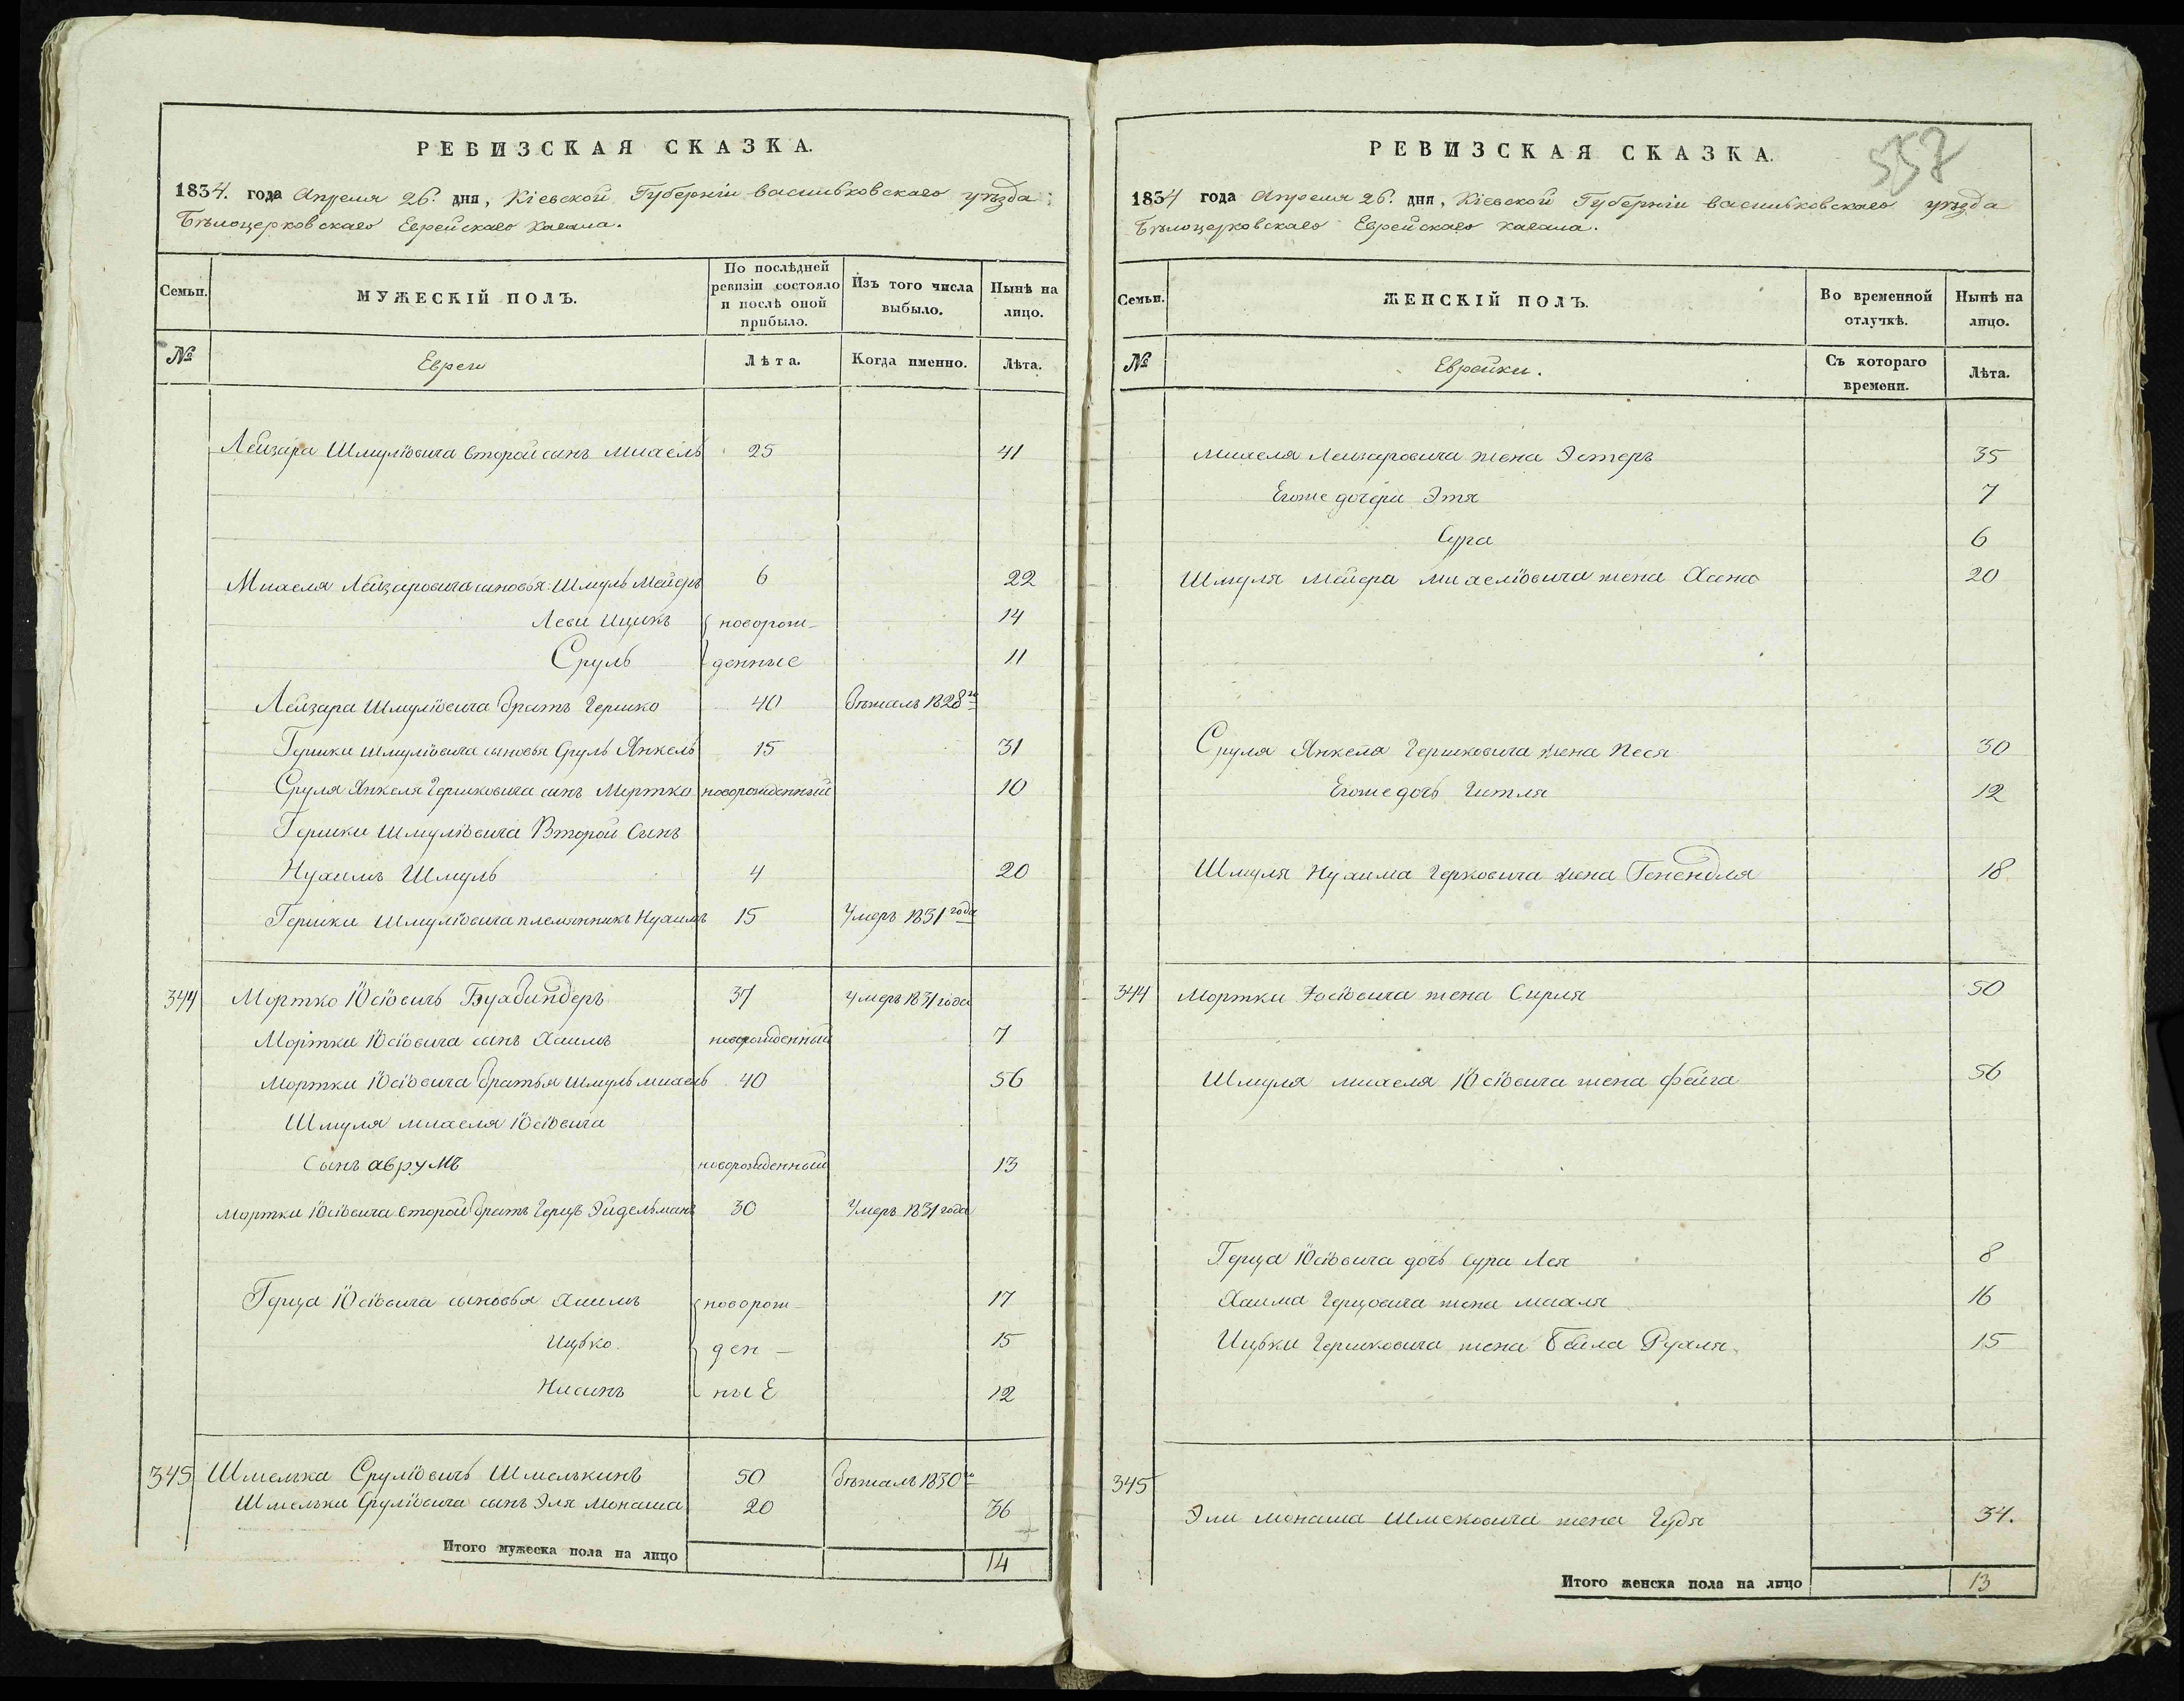 РЕВИЗСКАЯ СКАЗКА.
1834. года Апреля 26. дня, Кіевской Губерніи васильковскаго уѣзда
Бѣлоцерковскаго Еврейскаго кагала.
Семьи.
МУЖЕСКІЙ ПОЛЪ.
По послѣдней ревизіи состояло и послѣ оной прибыло.
Изъ того числа выбыло.
Нынѣ на лицо.
№
Евреи
Лѣта.
Когда именно.
Лѣта.
Лейзара Шмулiовича второй сынъ Михель 25 41
Михеля Лейзаровича сыновья Шмуль Мейеръ 6 22
Леви Ицикъ новорож- 14
Сруль денные 11
Лейзара Шмулiовича братъ Гершко 40 бѣжалъ 1828го
Гершки Шмулiовича сыновья Сруль Янкель 15 31
Сруля Янкеля Гершковича сынъ Мортко новорожденный 10
Гершки Шмулiовича Второй Сынъ
Нухимъ Шмуль 4 20
Гершки Шмулiовича племянникъ Нухимъ 15 Умеръ 1831 года
344 Мортко Юсiовичъ Бухбиндеръ 37 Умеръ 1831 года
Мортки Юсiовича сынъ Хаимъ новорожденный 7
Мортки Юсiовича братья Шмуль михель 40 56
Шмуля михеля Юсiовича
Сынъ аврумъ новорожденный 13
Мортки Юсiовича второй братъ Герцъ Эйдельманъ 30 Умеръ 1831 года
Герца Юсiовича сыновья Хаимъ новорож- 17
Ицько ден- 15
Нисинъ ные 12
345 Шмелька Срулiовичъ Шмелькинъ 50 бѣжалъ 1830го
Шмельки Срулiовича сынъ Эля Монаша 20 36
Итого мужеска пола на лицо 14
РЕВИЗСКАЯ СКАЗКА.
557
1834 года Апреля 26. дня, Кіевской Губерніи васильковскаго уѣзда
Бѣлоцерковскаго Еврейскаго кагала.
Семьи.
ЖЕНСКІЙ ПОЛЪ.
Во временной отлучкѣ.
Нынѣ на лицо.
№
Еврейки.
Съ котораго времени.
Лѣта.
Михеля Лейзаровича жена Эстеръ 35
Егоже дочери Этя 7
Сура 6
Шмуля Мейера михелiовича жена Хана 20
Сруля Янкеля Гершковича жена Песя 30
Егоже дочь Гитля 12
Шмуля Нухима Герковича жена Генендля 18
344 Мортки Юсiовича жена Сирля 50
Шмуля михеля Юсiовича жена фейга 56
Герца Юсiовича дочь Сура Лея 8
Хаима Герцовича жена махля 16
Ицьки Гершковича жена Бейла Рухля 15
345
Эли монаша Шмековича жена Гудя 34.
Итого женска пола на лицо 13